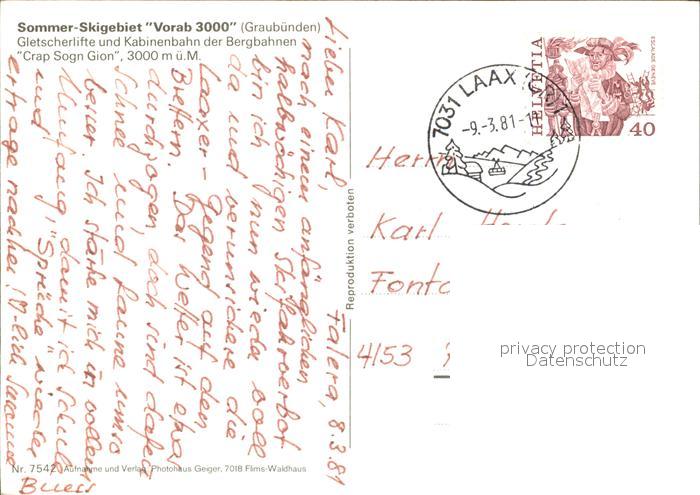 Sommer-Skigebiet "Vorab 3000" (Graubünden)
Gletscherlifte und Kabinenbahn der Bergbahnen
"Crap Sogn Gion", 3000 m ü.M.
Lieber Karl, Falera, 8.3.81
nach einem anfänglichen
halbwöchigen Skifahrverbot
bin ich nun wieder voll
da und verunsichere die
Laaxer-Gegend auf den
Brettern. Das Wetter ist etwas
durchzogen, doch sind dafür
Schnee und Laune umso
besser. Ich stärke mich in vollem
Umfang, damit ich Schul
und "Sprüche" wieder
ertrage nachher!
Buess
Reproduktion verboten
Nr. 7542 Aufnahme und Verlag Photohaus Geiger, 7018 Flims-Waldhaus
7031 LAAX
-9.-3.81-1
HELVETIA
ESCALADE GENÈVE
40
Herrn
Karl
Fonta
4153
privacy protection
Datenschutz